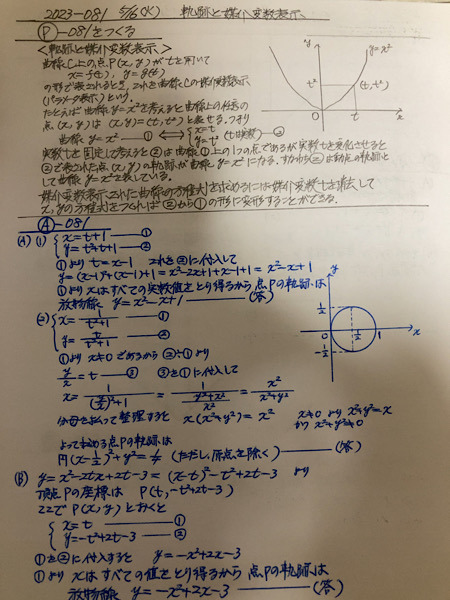 2023-081 5/16(火) 軌跡と媒介変数表示
Ⓟ-081をつくる
<軌跡と媒介変数表示>
曲線C上の点P(x, y)がtを用いて
x=f(t), y=g(t)
の形で表されるとき、これを曲線Cの媒介変数表示
(パラメータ表示)という。
たとえば 曲線 y=x² を考えると曲線上の任意の
点(x, y)は (x, y)=(t, t²) と表せる。つまり
曲線 y=x² ―① ⟺ {x=t
y=t² (tは実数) ―②
実数tを固定して考えると②は曲線①上の1つの点であるが実数tを変化させると
②で表された点(x, y)の軌跡が曲線 y=x² になる。すなわち②は動点の軌跡と
して曲線 y=x²を表している。
媒介変数表示された曲線の方程式を求めるには媒介変数tを消去して
x, yの方程式をつくれば②から①の形に変形することができる。
y
y=x²
t²
(t, t²)
0
t
x
Ⓐ-081
(A) (1) {x=t+1 ―①
y=t²+t+1 ―②
①より t=x-1 これを②に代入して
y=(x-1)²+(x-1)+1=x²-2x+1+x-1+1=x²-x+1
①より xはすべての実数値をとり得るから 点Pの軌跡は
放物線 y=x²-x+1 ―(答)
(2) {x=1/(t²+1) ―①
y=t/(t²+1) ―②
①より x≠0 であるから ②÷①より
y/x=t ―③ ③を①に代入して
x=1/((y/x)²+1)=1/((y²+x²)/x²)=x²/(x²+y²)
分母をはらって整理すると x(x²+y²)=x² x≠0 より x²+y²=x
かつ x²+y²≠0
よって求める点Pの軌跡は
円(x-1/2)²+y²=1/4 (ただし、原点を除く) ―(答)
y
1/2
0
1/2
1
x
-1/2
(B) y=x²-2tx+2t-3=(x-t)²-t²+2t-3 より
頂点Pの座標は P(t, -t²+2t-3)
ここで P(x, y) とおくと
{x=t ―①
y=-t²+2t-3 ―②
①を②に代入すると y=-x²+2x-3
①より xはすべての値をとり得るから 点Pの軌跡は
放物線 y=-x²+2x-3 ―(答)